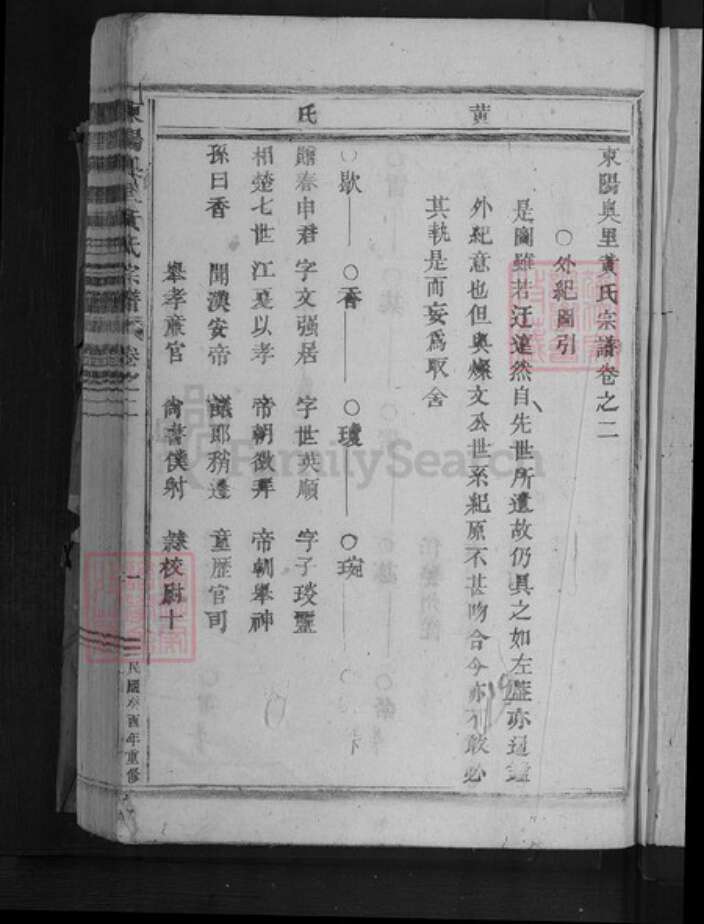 黃氏
東陽奥里黃氏宗譜卷之二
○外紀圖引
是圖雖若迂遠然自先世所遺故仍具之如左歷亦
外紀意也但與燦文公世系紀原不甚吻合今亦不敢必
其孰是而妄爲取舍
○歇 ○香 ○瓊 ○琬
諡春申君 字文强居 字世英順 字子琰
相楚七世 江夏以孝 帝朝徵拜 帝朝舉神
孫曰香 聞漢安帝 議郎稍遷 童歷官司
舉孝廉官 尙書僕射 隸校尉十
東陽奥里黃氏宗譜 卷之二
一
民國癸酉年重修
FamilySearch